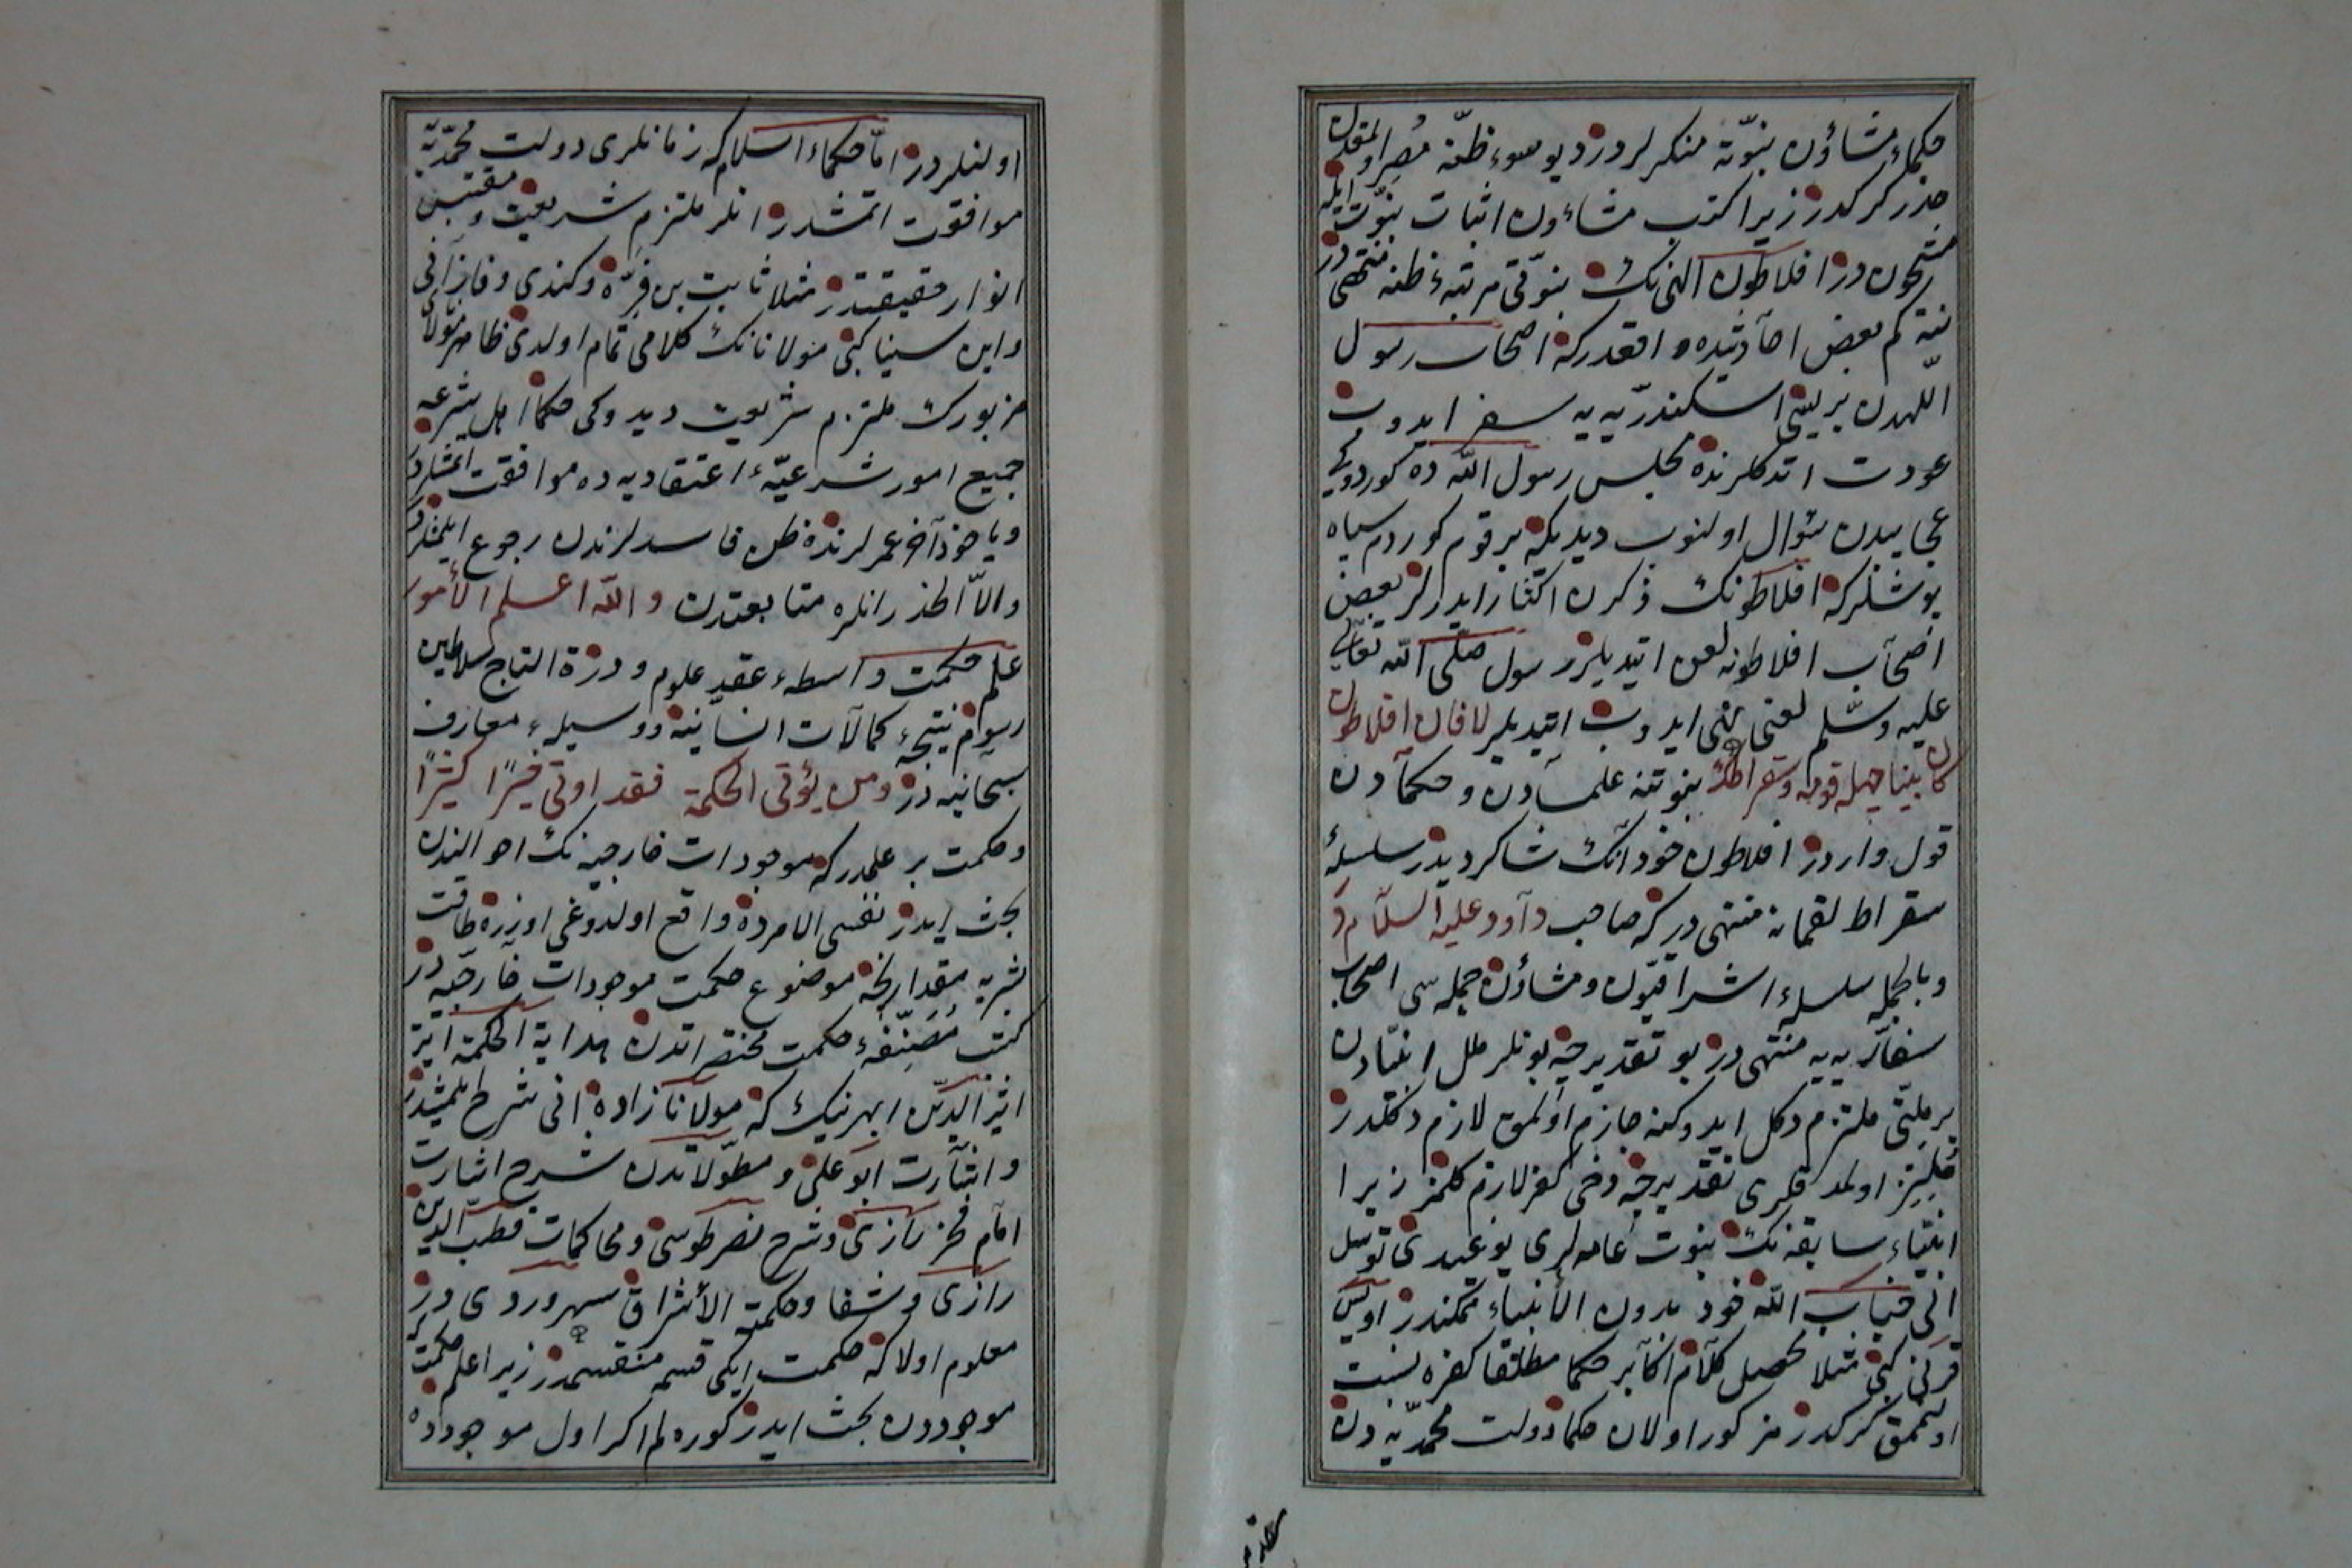 حكماء مشاؤن نبوّته منكرلردر ديو سوء ظنّه مُصر اولمقدن
حذر كركدر زيرا كتب مشاؤن اثبات نبوّت ايله
مشحون در افلاطون الهى نك نبوّتى مرتبهٔ ظنه منتهى در
نته كم بعض احاديثده واقعدركه اصحاب رسول
اللّهدن بريسى اسكندريّه يه سفر ايدوب
عودت اتدكلرنده مجلس رسول اللّه ده كوردوكى
عجايبدن سؤال اولنوب ديديكه بر قوم كوردم سياه
پوشلركه افلاطونك ذكرن اكثار ايدرلر بعض
اصحاب افلاطونه لعن اتيديلر رسول صلّى اللّه تعالى
عليه وسلّم لعنى نهى ايدوب اتيديلر لا فان افلاطون
كان نبينا جهله قومه وسقراطك نبوتنه علمادن وحكمادن
قول واردر افلاطون خود انك شاكرديدر سلسلهٔ
سقراط لقمانه منتهى در كه صاحب داود عليه السلام در
وبالجمله سلسلهٔ اشراقيّون ومشاؤن جمله سى اصحاب
سفاّريه يه منتهى در بو تقديرجه بونلر ملل انبيّادن
بر ملتى ملتزم دكل ايدوكنه جازم اولمق لازم دكلدر
ملتزم اولمدقلرى تقديرجه دخى كفر لازم كلمز زيرا
انبيّاء سابقه نك نبوت عامه لرى يوغيدى توسل
الى جناب اللّه خود بدون الأنبياء ممكندر اويس
قرنى كبى مثلا محصل كلام اكابر حكما مطلقا كفره نسبت
اولنمق كركدر مزكور اولان حكما دولت محمّديّه دن
اولنلردر امّا حكماء اسلام كه زمانلرى دولت محمّديّه
موافقت اتمشدر انلر ملتزم شريعت ومقتبس
انوار حقيقتدر مثلا ثابت بن قرّه وكندى وفارابى
وابن سينا كبى مولانانك كلامى تمام اولدى ظاهر مولاناى
مزبورك ملتزم شريعت ديدوكى حكما اهل شرعه
جميع امور شرعيّهٔ اعتقاديه ده موافقت اتمشلردر
وياخود آخر عمرلرنده ظن فاسدلرندن رجوع ايلمشلردر
والاّ الحذر انلره متابعتدن واللّه اعلم الأمور
علم حكمت واسطهٔ عقد علوم ودرّة التاج سلاطين
رسوم نتيجهٔ كمالات انسانيه ووسيلهٔ معارف
سبحانيه در ومن يؤتى الحكمة فقد اوتى خيرًا كثيرًا
وحكمت بر علمدركه موجودات خارجيه نك احوالندن
بحث ايدر نفس الامرده واقع اولدوغى اوزره طاقت
بشريه مقدارنجه موضوع حكمت موجودات خارجيّه در
كتب مُصَنّفهٔ حكمت مختصراتدن هداية الحكمة اثر
اثير الدّين ابهرينك كه مولانا زاده انى شرح ايلمشدر
واشارت ابو على ومطوّلاتدن شرح اشارت
امام فخر رازى وشرح نصر طوسى ومحاكمات قطب الدين
رازى وشفا وحكمة الأشراق سهروردى در
معلوم اولا كه حكمت ايكى قسمه منقسمدر زيرا علم حكمت
موجوددن بحث ايدر كوره لم اكر اول موجوده